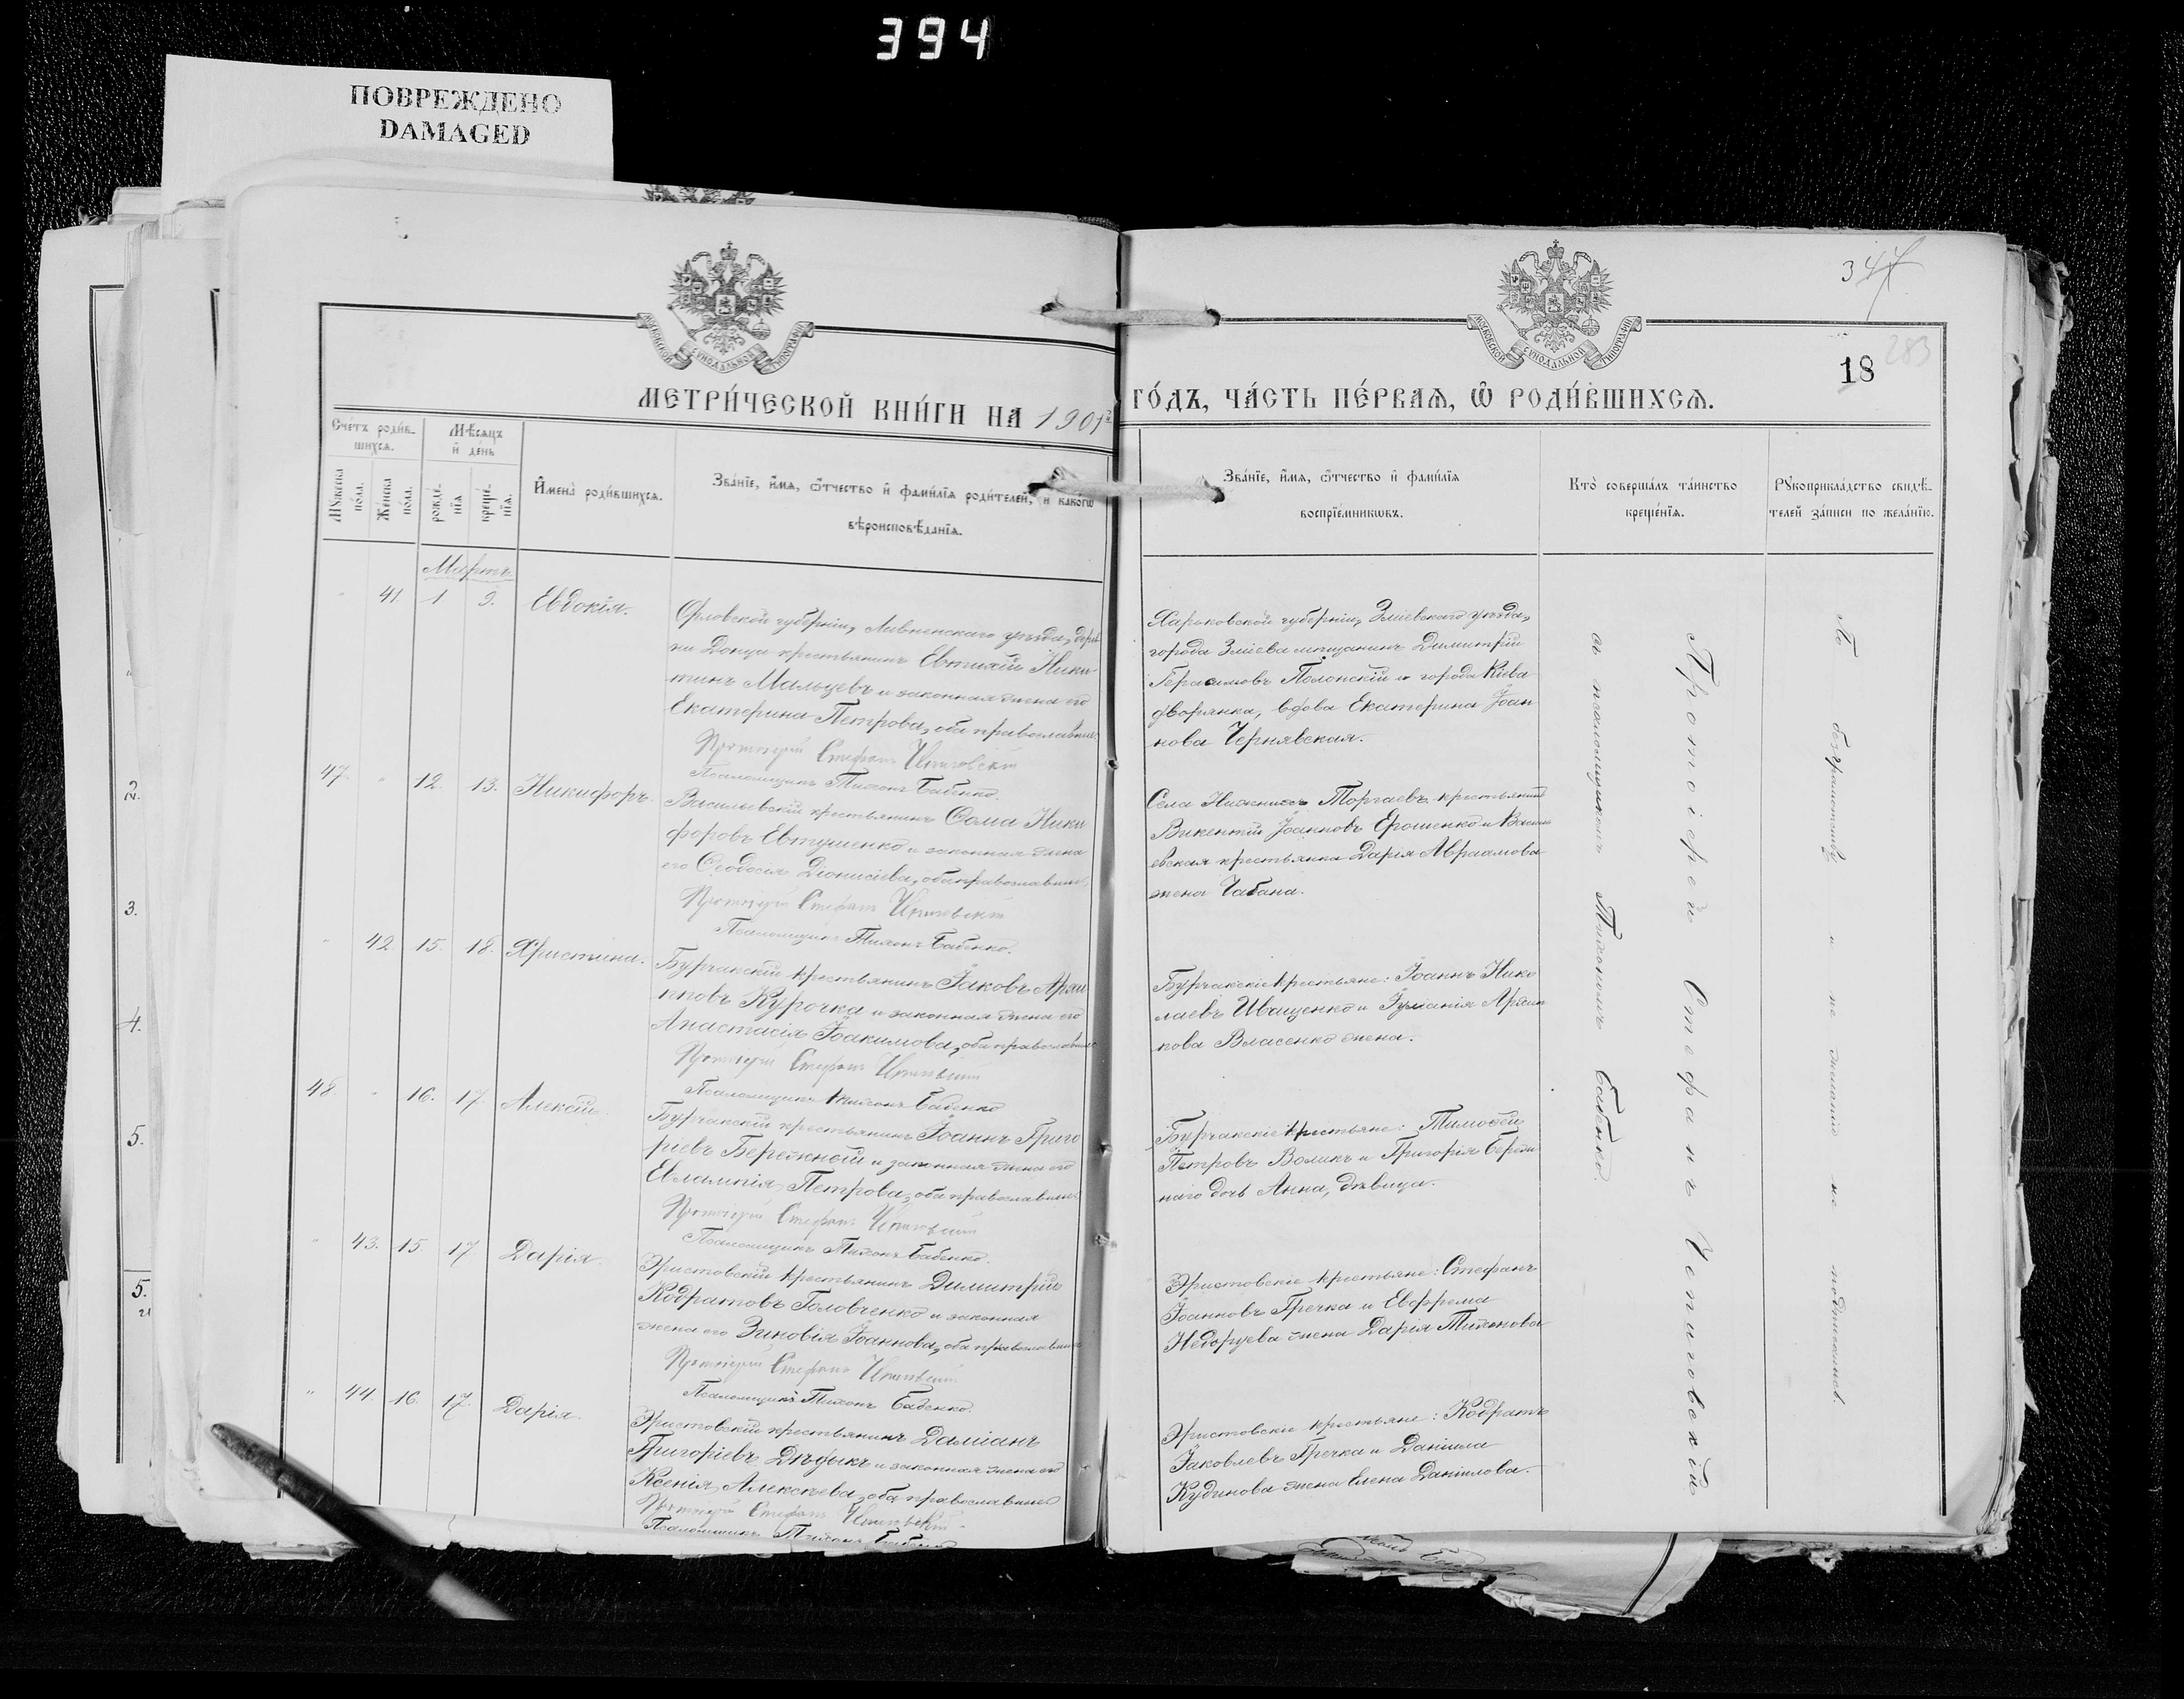 394
ПОВРЕЖДЕНО
DAMAGED
347
283
18
МОСКОВСКОЙ СѴНОДАЛЬНОЙ ТИПОГРАФІИ
МОСКОВСКОЙ СѴНОДАЛЬНОЙ ТИПОГРАФІИ
МЕТРИ́ЧЕСКОЙ КНИ́ГИ НА 1901й
ГО́ДЪ, ЧА́СТЬ ПЕ́РВАѦ, Ѡ҆ РОДИ́ВШИХСѦ.
Сче́тъ роди́в-
шихсѧ.
Мꙋ́жеска
по́ла.
Же́нска
по́ла.
Мѣ́сѧцъ
и҆ де́нь
рожде́-
нїѧ
креще́-
нїѧ.
И҆мена̀ роди́вшихсѧ.
Зва́нїе, и҆́мѧ, ѻ҆́тчество и҆ фами́лїѧ роди́телей, и҆ како́гѡ
вѣроисповѣ́данїѧ.
Зва́нїе, и҆́мѧ, ѻ҆́тчество и҆ фами́лїѧ
воспрїе́мникѡвъ.
Кто̀ соверша́лъ та́инство
креще́нїѧ.
Рꙋкоприкла́дство свидѣ́-
телей за́писи по жела́нїю.
Мартъ
" 41. 1 9. Евдокія.
Орловской губерніи, Ливненскаго уѣзда, дерев
ни Донци крестьянинъ Евтихій Ники
тинъ Мальцевъ и законная жена его
Екатерина Петрова, оба православные
Протоіерей Стефанъ Чепиговскій
Псаломщикъ Тихонъ Бабенко.
Харьковской губерніи, Зміевскаго уѣзда,
города Зміева мѣщанинъ Димитрій
Герасимовъ Полонскій и города Кіева
дворянка, вдова Екатерина Іоан
нова Чернявская.
47. " 12. 13. Никифоръ.
Васильевскій крестьянинъ Ѳома Ники
форовъ Евтушенко и законная жена
его Ѳеодосія Діонисіева, оба православные,
Протоіерей Стефанъ Чепиговскій
Псаломщикъ Тихонъ Бабенко.
Села Нижнихъ Торгаевъ крестьянинъ
Викентій Іоанновъ Ерошенко и Василь
евская крестьянка Дарія Авраамова
жена Чабана.
" 42 15. 18. Христина.
Бурчакскій крестьянинъ Іаковъ Архи
пповъ Курочка и законная жена его
Анастасія Іоакимова, оба православные
Протоіерей Стефанъ Чепиговскій
Псаломщикъ Тихонъ Бабенко
Бурчакскіе крестьяне: Іоаннъ Нико
лаевъ Иващенко и Іуліанія Архип
пова Власенко жена.
48. " 16. 17. Алексій.
Бурчакскій крестьянинъ Іоаннъ Григо
ріевъ Бережной и законная жена его
Евлампія Петрова, оба православные
Протоіерей Стефанъ Чепиговскій
Псаломщикъ Тихонъ Бабенко.
Бурчакскіе крестьяне: Тимоѳей
Петровъ Воликъ и Григорія Береж
наго дочь Анна, дѣвица.
" 43. 15. 17 Дарія.
Эристовскій крестьянинъ Димитрій
Кодратовъ Головченко и законная
жена его Зиновія Іоаннова, оба православные
Протоіерей Стефанъ Чепиговскій
Псаломщикъ Тихонъ Бабенко.
Эристовскіе крестьяне: Стефанъ
Іоанновъ Гречка и Евфрема
Недоруева жена Дарія Тихонова
" 44. 16. 17. Дарія.
Эристовскій крестьянинъ Даміанъ
Григоріевъ Дѣдыкъ и законная жена его
Ксенія Алексѣева, оба православные
Протоіерей Стефанъ Чепиговскій
Псаломщикъ Тихонъ Бабенко
Эристовскіе крестьяне: Кодратъ
Іаковлевъ Гречка и Даніила
Кудинова жена Елена Даніилова.
Протоіерей Стефанъ Чепиговскій
съ псаломщикомъ Тихономъ Бабенко.
По безграмотству и не желанію не подписались.
2.
3.
4.
5.
5.